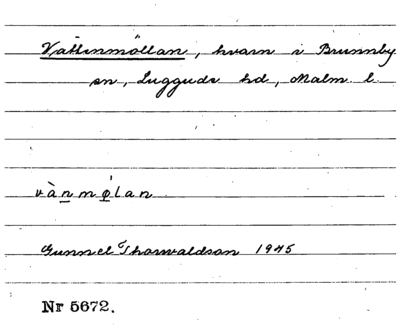 Vattenmöllan, kvarn i Brunnby
sn, Luggude hd, Malm. l.
vànmø̀lan
Gunnel Thorvaldson 1945
Nr 5672.